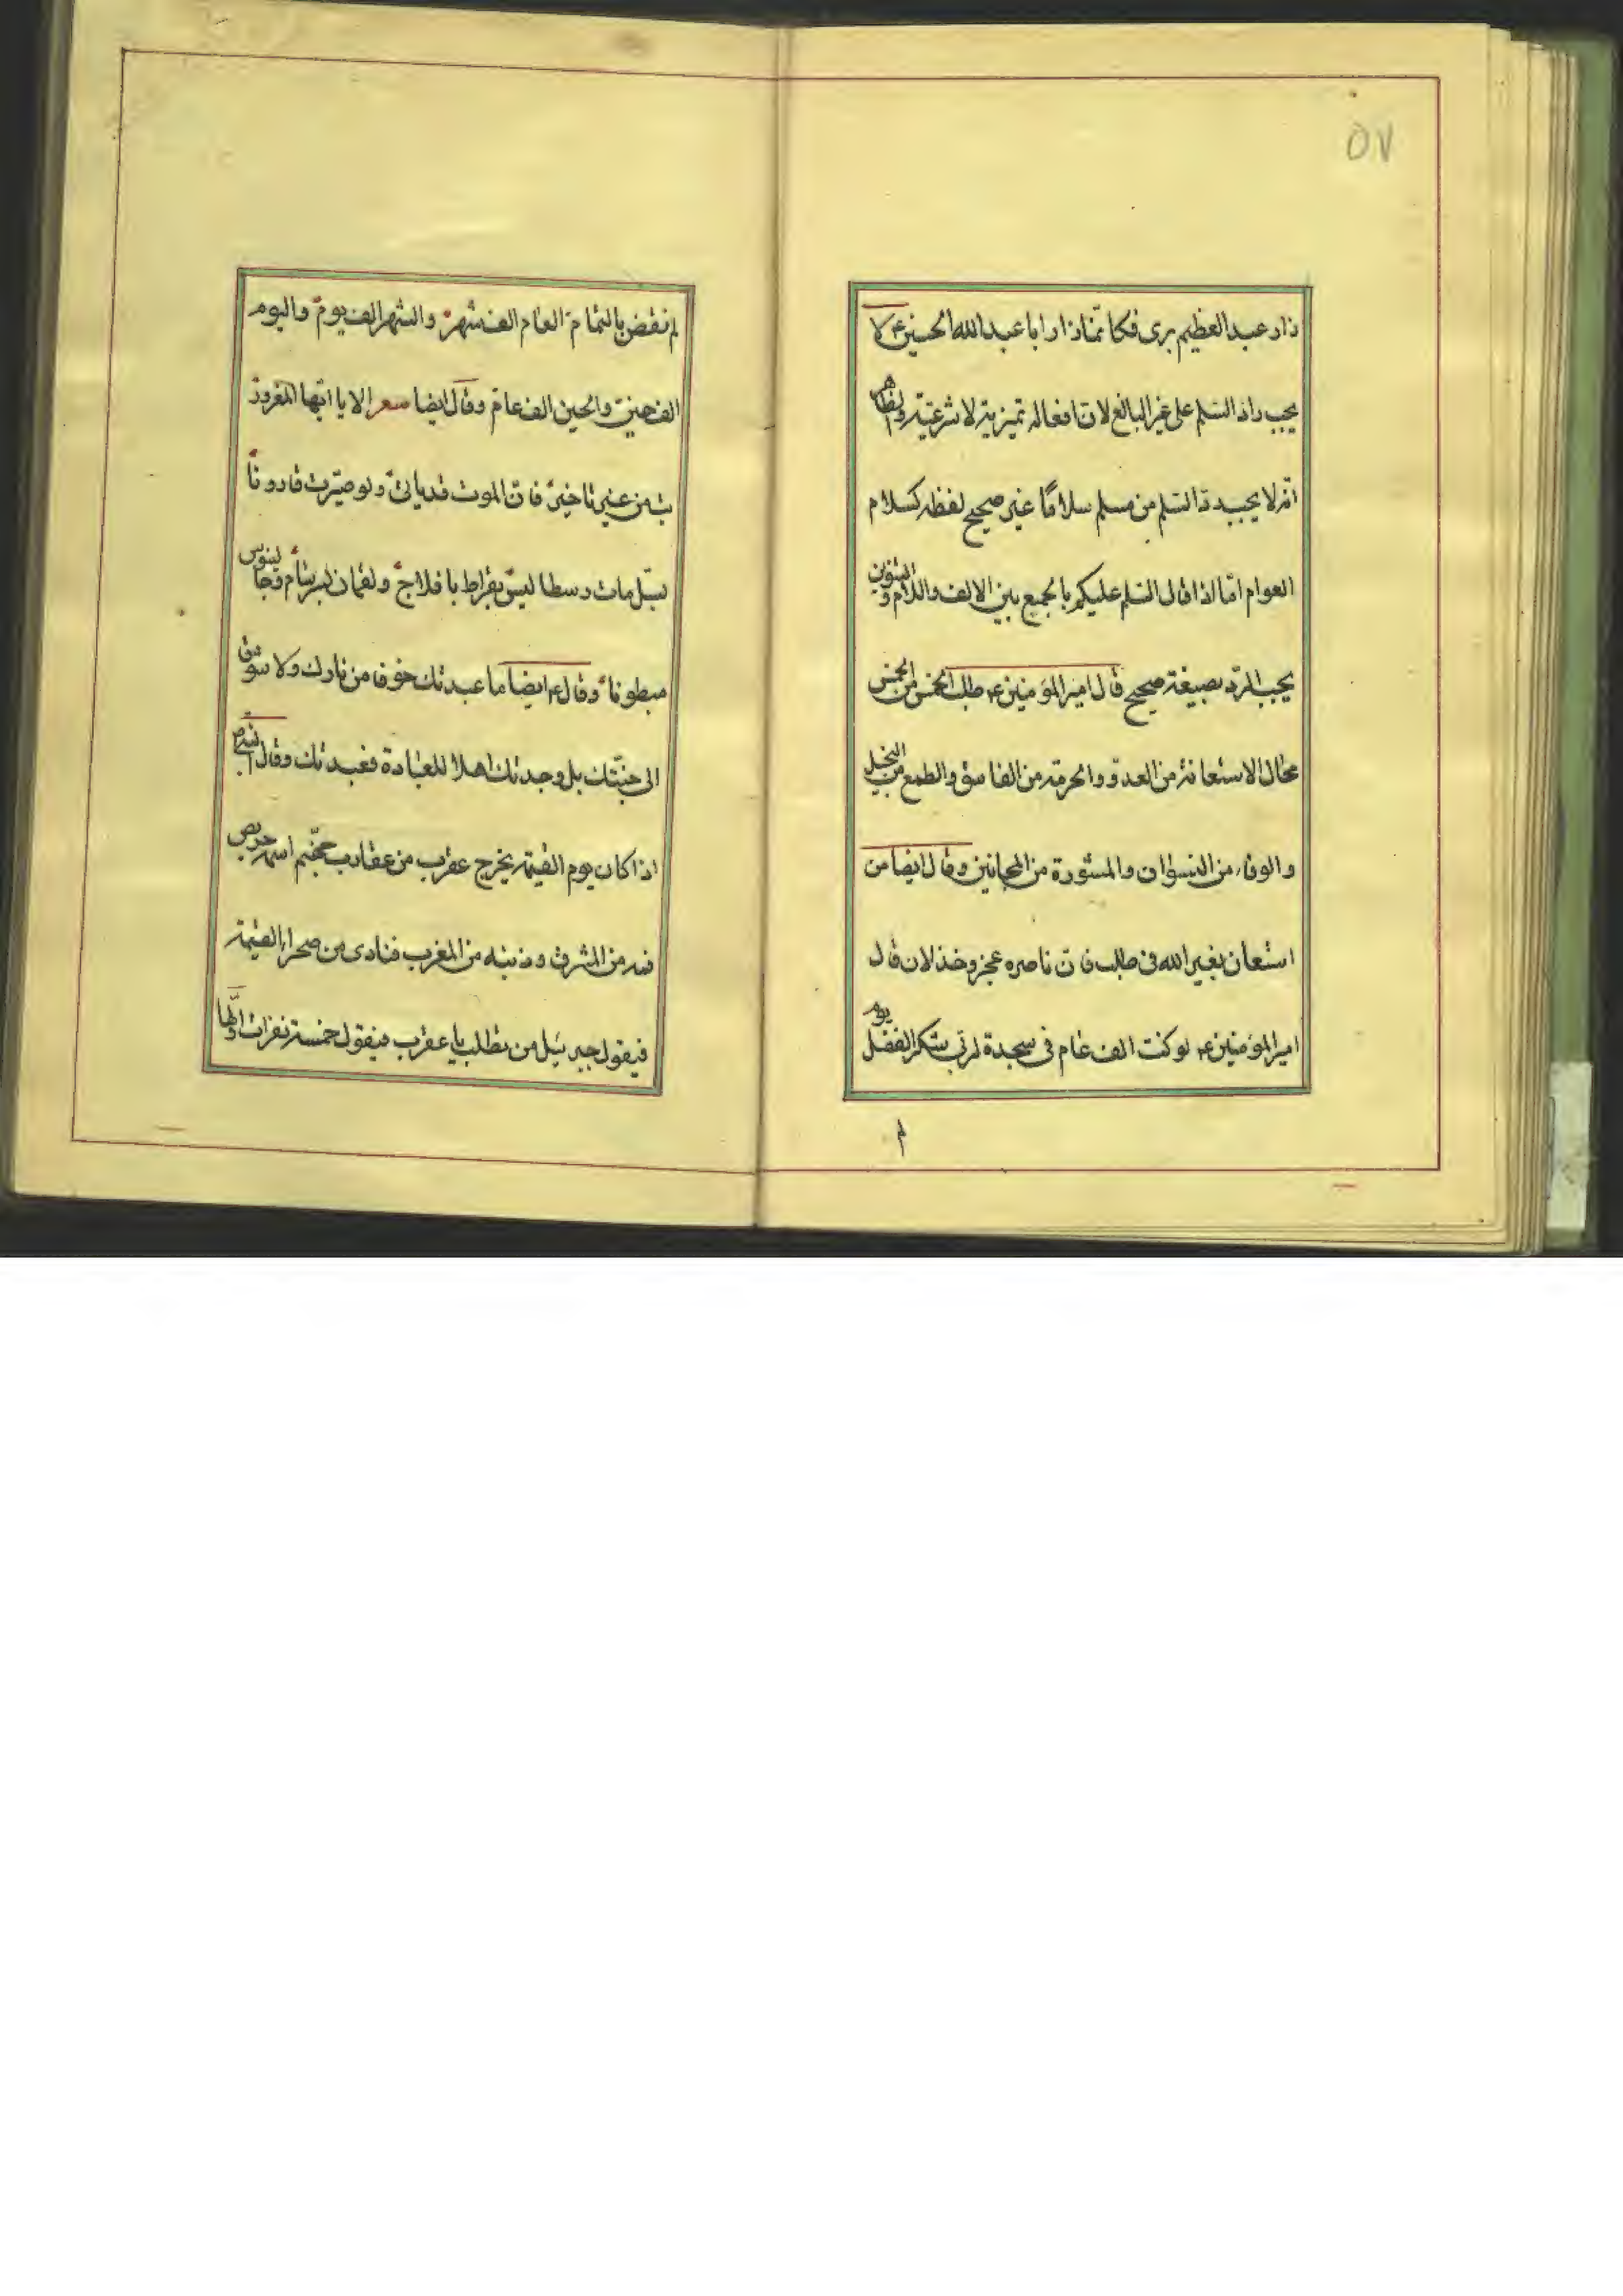 ٥٧
زار عبد العظیم بری فکانّما زار ابا عبد الله الحسین ع لا
یجب راد السّلم علی غیر البالغ لانّ افعاله تمیزیة لا شرعیّة والظاهر
انّه لا یجب ردّ السّلم من مسلم سلامًا غیر صحیح لفظه کسلام
العوام امّا اذا قال السّلم علیکم بالجمع بین الالف واللام والتنوین
یجب الردّ بصیغة صحیح قال امیر المؤمنین ع طلب الخمس من الخمس
محال الاستعانة من العدوّ والحرمة من الفاسق والطمع من البخیل
والوفاء من النسوان والمشورة من المجانین وقال ایضا من
استعان بغیر الله فی طلب فانّ ناصره عجز وخذلان قال
امیر المؤمنین ع لو کنت الف عام فی سجدة لربّی شکر الفضل یوم
لم
لم نقض بالتمام العام الف شهر والشهر الف یوم والیوم
الف حین والحین الف عام وقال ایضا شعر الا یا ایّها المغرور
تب من غیر تاخیر فانّ الموت قد یاتی ولو صیّرت قارونا
بسلّ مات رسطا لیس بقراط بافلاج ولقمان لبرسام وجالینوس
مبطونا وقال ع ایضا ما عبدتک خوفا من نارک ولا شوق
الی جنّتک بل وجدتک اهلا للعبادة فعبدتک وقال النبی ص
اذا کان یوم القیمة یخرج عقرب من عقارب جهنّم اسمه حریص
فمه من المشرق وذنبه من المغرب فنادی من صحراء القیمة
فیقول جبرئیل من تطلب یا عقرب فیقول خمسة نفرات اوّلها